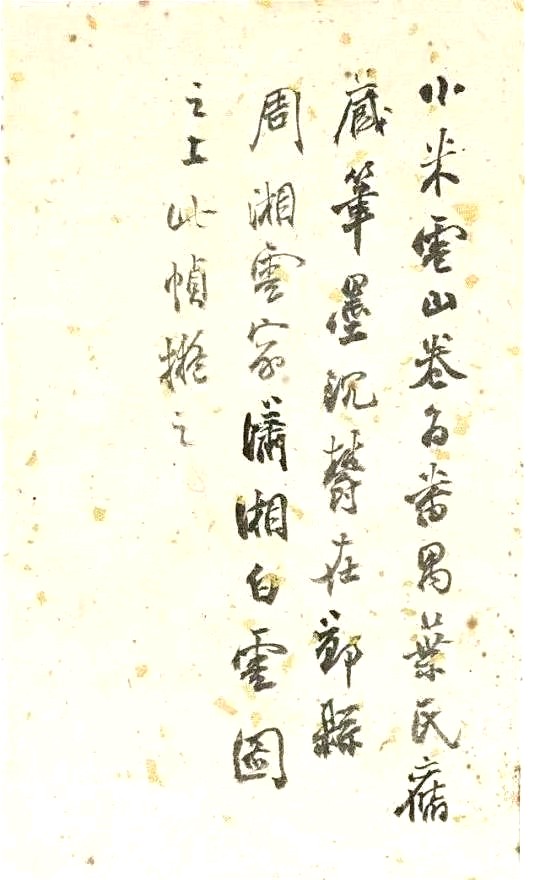 小米雲山卷為番禺葉氏舊
藏筆墨沉鬱在鄞縣
周湘雲家瀟湘白雲圖
之上此幀擬之